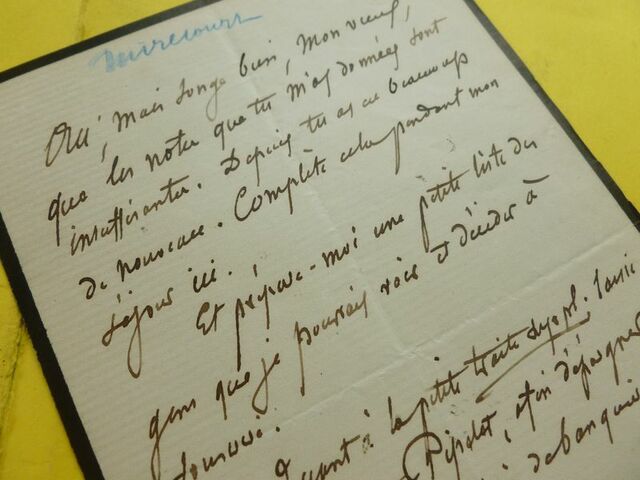 Mirecourt
Oui, mais songe bien, mon vieux,
que les notes que tu m'as données sont
insuffisantes. Depuis tu as eu beaucoup
de nouveau. Complète cela pendant mon
séjour ici.
Et prépare-moi une petite liste des
gens que je pourrais voir et décider à
souscrire.
Quant à la petite traite
Pipelet, afin d'épargner
de banquier